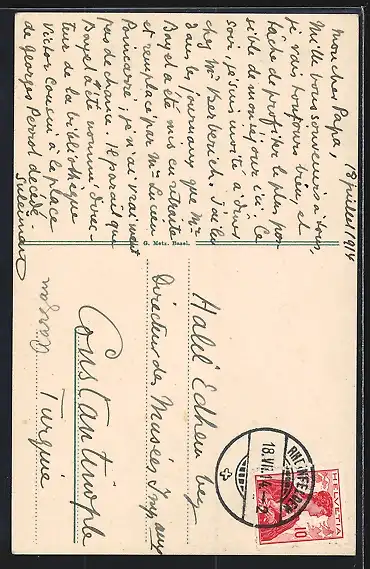 18 juillet 1914
Mon cher Papa,
Mille bons souvenirs à tous,
je vais toujours bien, et
tâche de profiter le plus pos-
sible de mon séjour ici. Ce
soir, je suis invité à dîner
chez Mr Berberich. J'ai lu
dans les journaux que Mr
Bayet a été mis en retraite
et remplacé par Mr Lucien
Poincaré; je n'ai vraiment
pas de chance. Il parait que
Bayet a été nommé direc-
teur de la bibliothèque
Victor Cousin à la place
de Georges Perrot décédé.
G. Metz, Basel.
Halil Edhem bey
Directeur des Musées Impaux
Constantinople
Turquie
RHEINFELDEN
18.VII.14
HELVETIA
10